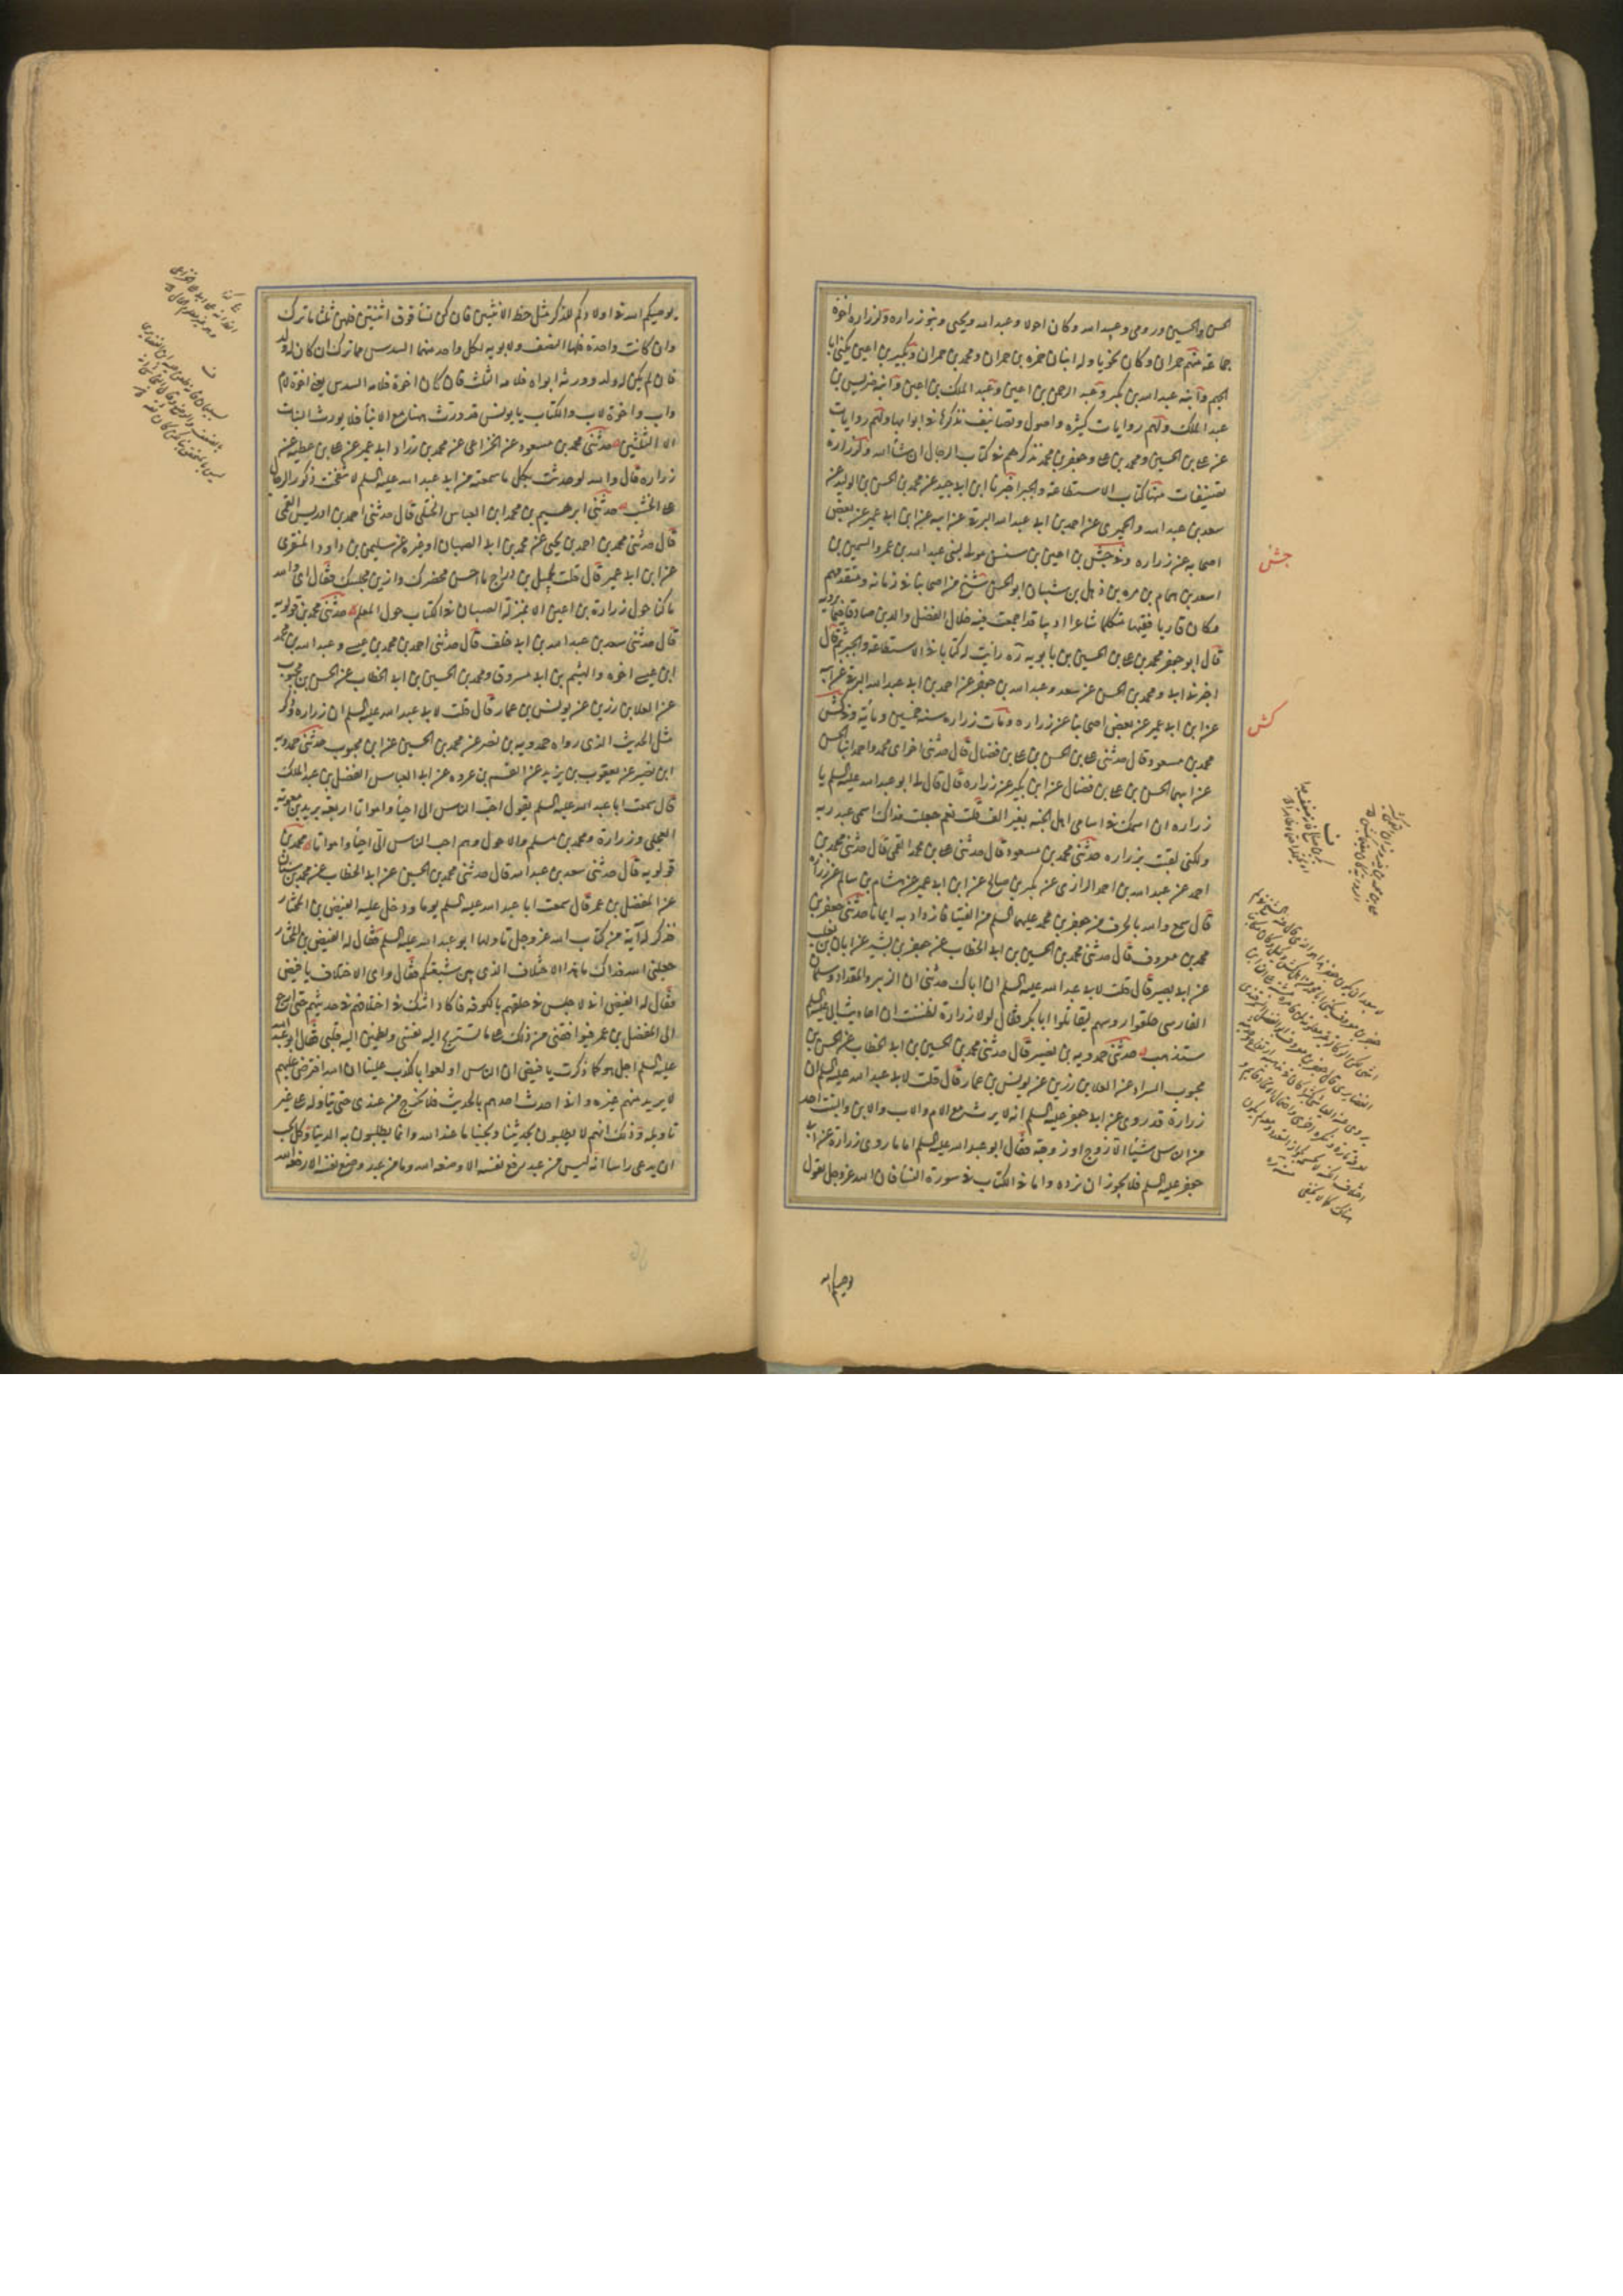 الحسن والحسين ورومى وعبيد الله وكان احول وعبد الله ويحيى وبنو زراره ولزراره اخوة
جماعة منهم حمران وكان نحويا وله ابنان حمزه بن حمران ومحمد بن حمران وبكير بن اعين يكنى ابا
الجهم وابنه عبد الله بن بكير وعبد الرحمن بن اعين وعبد الملك بن اعين وابنه ضريس بن
عبد الملك ولهم روايات كثيره واصول وتصانيف نذكرها فى ابوابها ولهم روايات
عن على بن الحسين ومحمد بن على وجعفر بن محمد نذكرهم فى كتاب الرجال ان شاء الله ولزراره
تصنيفات منها كتاب الاستطاعة والجبر اخبرنا ابن ابى جيد عن محمد بن الحسن بن الوليد عن
سعد بن عبد الله والحميرى عن احمد بن ابى عبد الله البرقى عن ابيه عن ابن ابى عمير عن بعض
اصحابه عن زراره وفى جش بن اعين بن سنسن مولى لبنى عبد الله بن عمرو السمين بن
اسعد بن همام بن مره بن ذهل بن شيبان ابو الحسن شيخ من اصحابنا فى زمانه ومتقدمهم
وكان قاريا فقيها متكلما شاعرا اديبا قد اجمعت فيه خلال الفضل والدين صادقا فيما يرويه
قال ابو جعفر محمد بن على بن الحسين بن بابويه ره رايت له كتابا فى الاستطاعة والجبر ثم قال
اخبرنى ابى ومحمد بن الحسن عن سعد وعبد الله بن جعفر عن احمد بن ابى عبد الله البرقى عن ابيه
عن ابن ابى عمير عن بعض اصحابنا عن زراره ومات زراره سنة خمسين ومأية وفى كش
محمد بن مسعود قال حدثنى على بن الحسن بن على بن فضال قال حدثنى اخواى محمد واحمد ابنا الحسن
عن ابيهما الحسن بن على بن فضال عن ابن بكير عن زراره قال قال لى ابو عبد الله عليه السلم يا
زراره ان اسمك فى اسامى اهل الجنة بغير الف قلت نعم جعلت فداك اسمى عبد ربه
ولكنى لقبت بزراره حدثنى محمد بن مسعود قال حدثنى على بن محمد القمى قال حدثنى محمد بن
احمد عن عبد الله بن احمد الرازى عن بكر بن صالح عن ابن ابى عمير عن هشام بن سالم عن زراره
قال سمع والله بالحرف من جعفر بن محمد عليهما السلم من الفتيا فازداد به ايمانا حدثنى جعفر بن
محمد بن معروف قال حدثنى محمد بن الحسين بن ابى الخطاب عن جعفر بن بشير عن ابان بن تغلب
عن ابى بصير قال قلت لابى عبد الله عليه السلم ان اباك حدثنى ان الزبير والمقداد وسلمان
الفارسى حلقوا روسهم ليقاتلوا ابا بكر فقال لولا زرارة لظننت ان احاديث ابى عليه السلم
ستذهب حدثنى حمدويه بن نصير قال حدثنى محمد بن الحسين بن ابى الخطاب عن الحسن بن
محبوب السراد عن العلا بن رزين عن يونس بن عمار قال قلت لابى عبد الله عليه السلم ان
زرارة قد روى عن ابى جعفر عليه السلم انه لا يرث مع الام والاب والابن والبنت احد
من الناس شيئا الا زوج او زوجة فقال ابو عبد الله عليه السلم اما ما روى زرارة عن ابى
جعفر عليه السلم فلا يجوز ان نرده واما فى الكتاب فى سورة النسا فان الله عز وجل يقول
جش
كش
يوصيكم الله فى اولادكم للذكر مثل حظ الانثيين فان كن نساء فوق اثنتين فلهن ثلثا ما ترك
وان كانت واحدة فلها النصف ولابويه لكل واحد منهما السدس مما ترك ان كان له ولد
فان لم يكن له ولد وورثه ابواه فلامه الثلث فان كان اخوة فلامه السدس يعنى اخوة لام
واب واخوة لاب والكتاب يا يونس قد ورث هنا مع الابناء فلا يورث البنات
الا الثلثين حدثنى محمد بن مسعود عن الخزاعى عن محمد بن زياد ابى عمير عن على بن عطيه عن
زراره قال والله لو حدثت بكل ما سمعته من ابى عبد الله عليه السلم لانتفخت ذكور الرجال
على الخشب حدثنى ابرهيم بن محمد ابن العباس الختلى قال حدثنى احمد بن ادريس القمى
قال حدثنى محمد بن احمد بن يحيى عن محمد بن ابى الصهبان او غيره عن سليمن بن داود المنقرى
عن ابن ابى عمير قال قلت لجميل بن دراج ما احسن محضرك وازين مجلسك فقال اى والله
ما كنا حول زرارة بن اعين الا بمنزلة الصبيان فى الكتاب حول المعلم حدثنى محمد بن قولويه
قال حدثنى سعد بن عبد الله بن ابى خلف قال حدثنى احمد بن محمد بن عيسى وعبد الله بن محمد
ابن عيسى اخوه والهيثم بن ابى مسروق ومحمد بن الحسين بن ابى الخطاب عن الحسن بن محبوب
عن العلا بن رزين عن يونس بن عمار قال قلت لابى عبد الله عليه السلم ان زراره وذكر
مثل الحديث الذى رواه حمدويه بن نصير عن محمد بن الحسين عن ابن محبوب حدثنى حمدويه
ابن نصير عن يعقوب بن يزيد عن القسم بن عروه عن ابى العباس الفضل بن عبد الملك
قال سمعت ابا عبد الله عليه السلم يقول احب الناس الى احياء وامواتا اربعة بريد بن معوية
العجلى وزرارة ومحمد بن مسلم والاحول وهم احب الناس الى احياء وامواتا محمد بن
قولويه قال حدثنى سعد بن عبد الله قال حدثنى محمد بن الحسين عن ابى الخطاب عن محمد بن سنان
عن المفضل بن عمر قال سمعت ابا عبد الله عليه السلم يوما ودخل عليه الفيض بن المختار
فذكر له آية من كتاب الله عز وجل تاولها ابو عبد الله عليه السلم فقال له الفيض بن المختار
جعلنى الله فداك ما هذا الاختلاف الذى بين شيعتكم فقال واى الاختلاف يا فيض
فقال له الفيض انى لاجلس فى حلقهم بالكوفه فاكاد اشك فى اختلافهم فى حديثهم حتى ارجع
الى المفضل بن عمر فيوافقنى من ذلك على ما تستريح اليه نفسى ويطمئن اليه قلبى فقال ابو عبد الله
عليه السلم اجل هو كما ذكرت يا فيض ان الناس اولعوا بالكذب علينا ان الله افترض عليهم
لا يريد منهم غيره وانى احدث احدهم بالحديث فلا يخرج من عندى حتى يتأوله على غير
تاويله وذلك انهم لا يطلبون بحديثنا وبحبنا ما عند الله وانما يطلبون به الدنيا وكل يحب
ان يدعى راسا انه ليس من عبد يرفع نفسه الا وضعه الله وما من عبد وضع نفسه الا رفعه الله